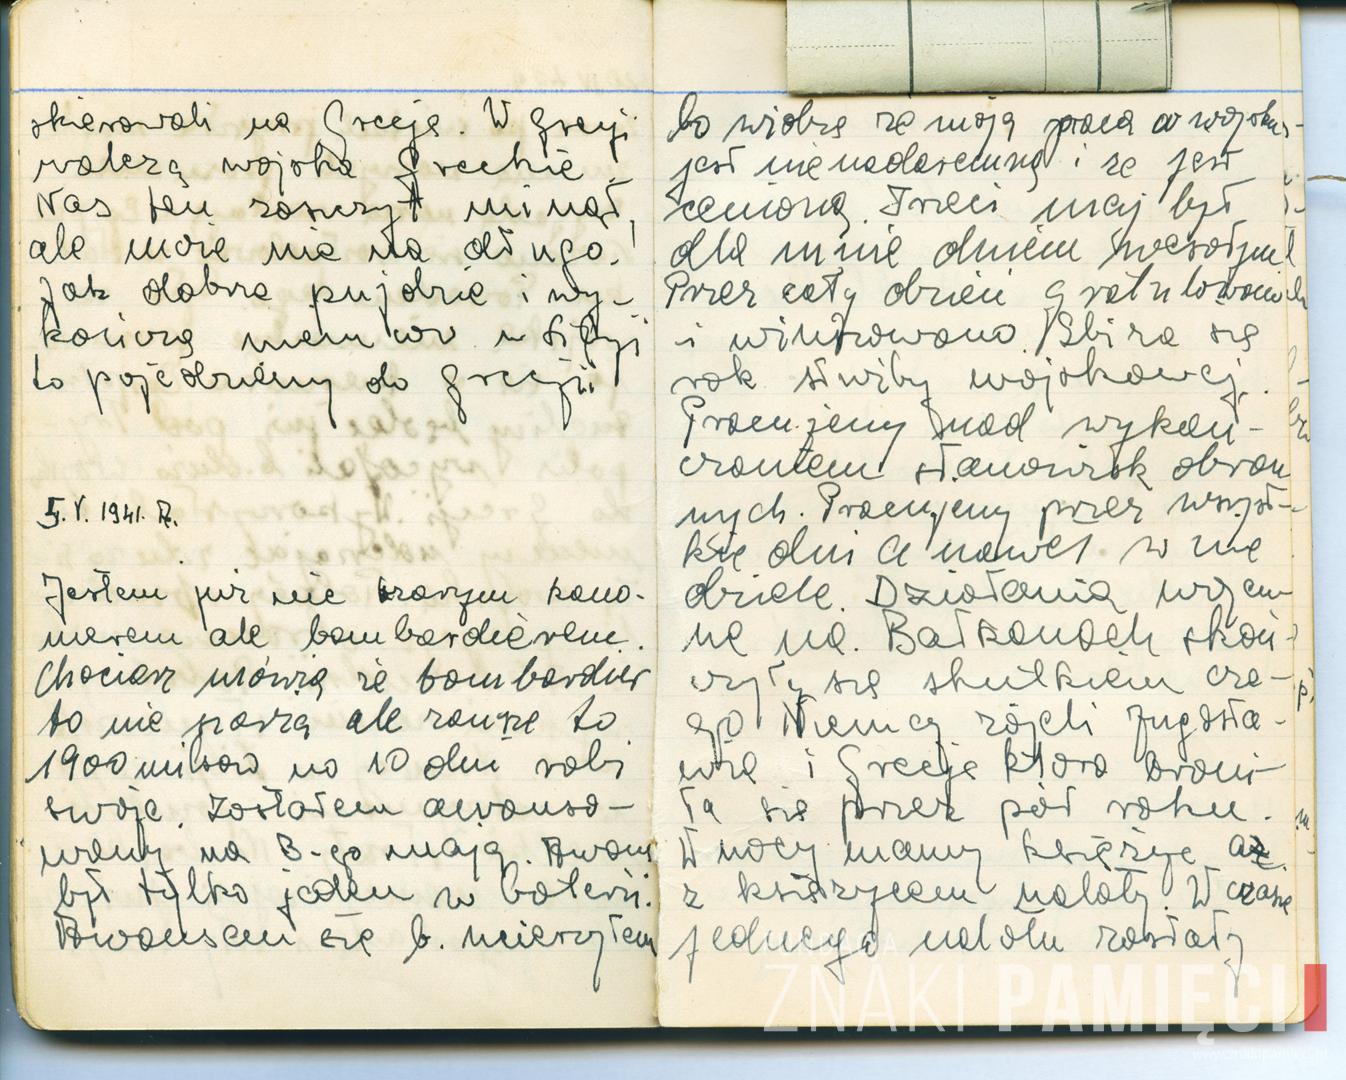 skierowali na Grecję. W Grecji
walczą wojska Greckie
Nas ten zaszczyt minął,
ale może nie na długo!
Jak dobrze pujdzie i wy-
kończą w Libji
to pojedziemy do Grecji
5.V. 1941. R.
Jestem już nie szarym kano-
nierem ale bombardierem.
Chociarz mówią że bombardier
to nie ale zawsze to
1900 milsów na 10 dni robi
swoje. Zostałem awanso-
wany na 3-go maja. Awans
był tylko jeden w baterii.
Awansem się b. ucieszyłem
bo widzę że moja praca w wojsku
jest nienadaremną i że jest
cenioną. Trzeci maj był
dla mnie dniem wesołym!
Przez cały dzień gratulowano
i winszowano. Zbliża się
rok służby wojskowej.
Pracujemy nad wykań-
czaniem stanowisk obron
nych. Pracujemy przez wszyst-
kie dni a nawet w nie
dziele. Działania wojen
ne na Bałkanach skoń-
czyły się skutkiem cze-
go Niemcy zajeli Jugosła-
wię i Grecję która broni-
ła się przez pół roku.
W nocy mamy księżyc a
z księżycem naloty. W czasie
jednego nalotu zostały
FUNDACJA
ZNAKI PAMIĘCI